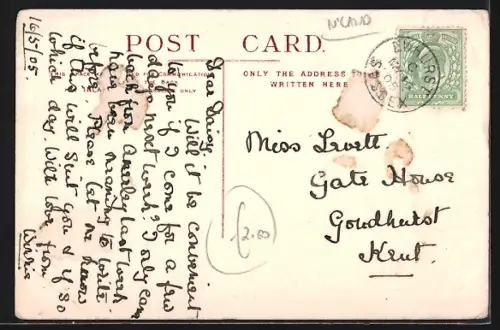 N'LAND
POST CARD.
ONLY THE ADDRESS
WRITTEN HERE
HALFPENNY
16/5/05.
Dear Daisy.
Will it be convenient
to you if I come for a few
days next week? I only came
back from last week
have been meaning to write
before. Please let me know
if this will suit you & if so
which day. With love from
Miss Levett
Gate House
Goudhurst
Kent.
£2.00